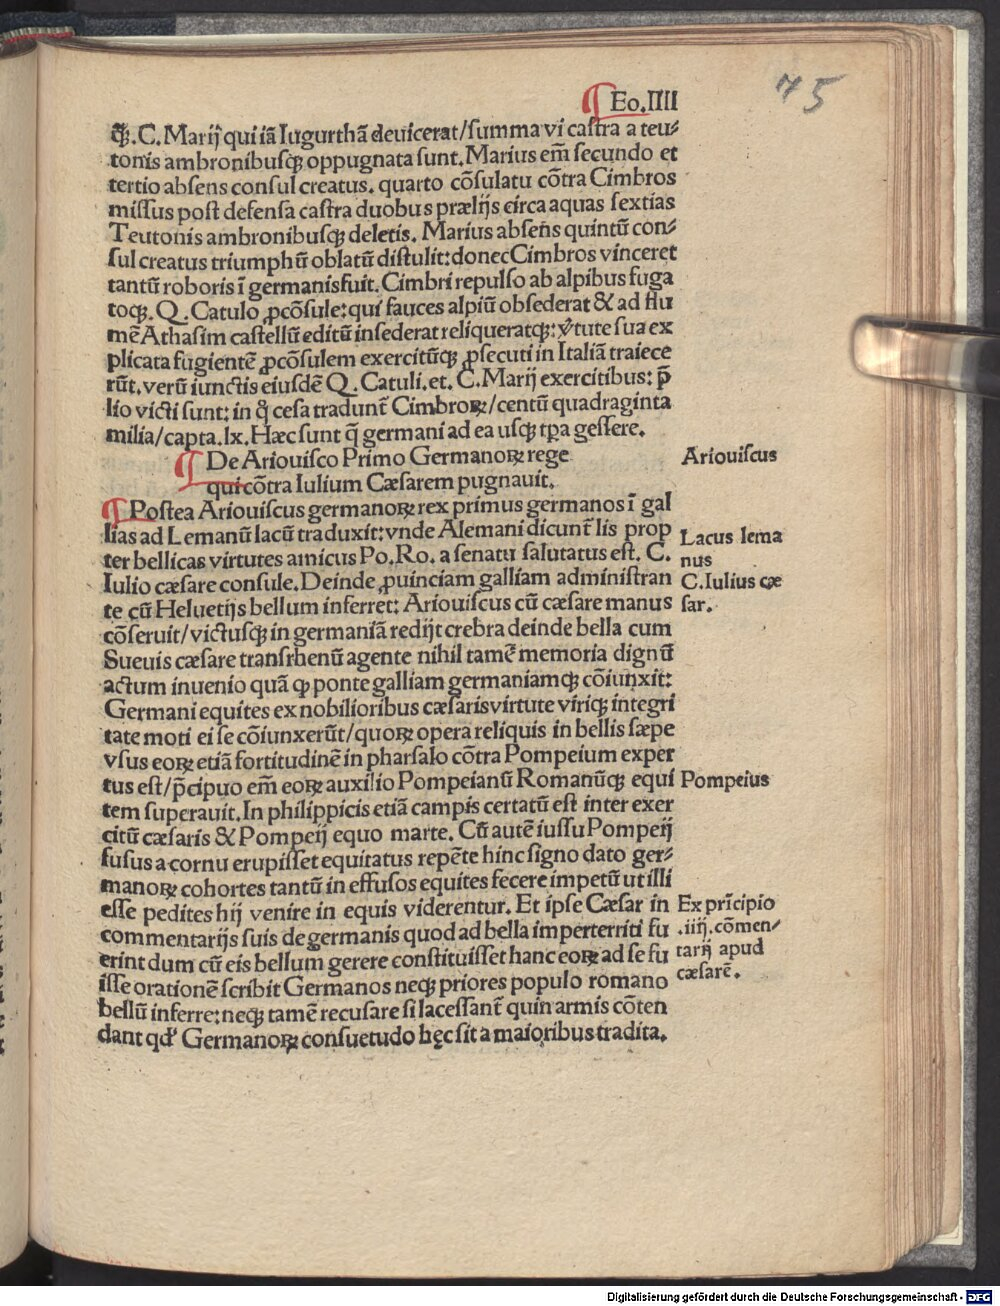 75
¶ Eo.IIII
q̃ꝫ.C.Marij qui iã Iugurthã deuicerat/ſumma vi caſtra a teu⸗
tonis ambronibuſqꝫ oppugnata ſunt.Marius em̃ ſecundo et
tertio abſens conſul creatus. quarto cõſulatu cõtra Cimbros
miſſus poſt defenſa caſtra duobus prælijs circa aquas ſextias
Teutonis ambronibuſqꝫ deletis. Marius abſens quintũ con⸗
ſul creatus triumphũ oblatũ diſtulit:donec Cimbros vinceret
tantũ roboris ĩ germanis fuit.Cimbri repulſo ab alpibus fuga
toqꝫ.Q.Catulo ꝓcõſule:qui fauces alpiũ obſederat & ad flu
mẽ Athaſim caſtellũ editũ inſederat reliqueratqꝫ:v̓tute ſua ex
plicata fugientẽ ꝓcõſulem exercitũqꝫ ꝓſecuti in Italiã traiece
rũt.verũ iunctis eiuſdẽ Q.Catuli.et.C.Marij exercitibus:p̃
lio victi ſunt:in q̊ ceſa tradunt̃ Cimbroꝝ/centũ quadraginta
milia/capta.lx.Hæc ſunt q̃ germani ad ea uſqꝫ tp̃a geſſere.
¶ De Ariouiſco Primo Germanoꝝ rege
qui cõtra Iulium Cæſarem pugnauit.
Ariouiſcus
¶ Poſtea Ariouiſcus germanoꝝ rex primus germanos ĩ gal
lias ad Lemanũ lacũ traduxit:vnde Alemani dicunt̃ lis prop
ter bellicas virtutes amicus Po.Ro. a ſenatu ſalutatus eſt. C.
Iulio cæſare conſule.Deinde ꝓuinciam galliam adminiſtran
te cũ Heluetijs bellum inferret: Ariouiſcus cũ cæſare manus
Lacus lema
nus
C.Iulius cæ
ſar.
cõſeruit/victuſqꝫ in germaniã redijt crebra deinde bella cum
Sueuis cæſare tranſrhenũ agente nihil tamẽ memoria dignũ
actum inuenio quã ꝙ ponte galliam germaniamqꝫ cõiunxit:
Germani equites ex nobilioribus cæſaris virtute viriqꝫ integri
tate moti ei ſe cõiunxerũt/quoꝝ opera reliquis in bellis ſæpe
vſus eoꝝ etiã fortitudinẽ in pharſalo cõtra Pompeium exper
tus eſt/p̃cipuo em̃ eoꝝ auxilio Pompeianũ Romanũqꝫ equi
Pompeius
tem ſuperauit.In philippicis etiã campis certatũ eſt inter exer
citũ cæſaris & Pompeij equo marte. Cũ autẽ iuſſu Pompeij
fuſus a cornu erupiſſet equitatus repẽte hinc ſigno dato ger⸗
manoꝝ cohortes tantũ in effuſos equites fecere impetũ ut illi
eſſe pedites hij venire in equis viderentur. Et ipſe Cæſar in
commentarijs ſuis de germanis quod ad bella imperterriti fu
erint dum cũ eis bellum gerere conſtituiſſet hanc eoꝝ ad ſe fu
Ex prĩcipio
.iiij.cõmen⸗
tarij apud
cæſarẽ.
iſſe orationẽ ſcribit Germanos neqꝫ priores populo romano
bellũ inferre:neqꝫ tamẽ recuſare ſi laceſſant̃ quin armis cõten
dant qđ Germanoꝝ conſuetudo hęc ſit a maioribus tradita.
Digitalisierung gefördert durch die Deutsche Forschungsgemeinschaft - DFG